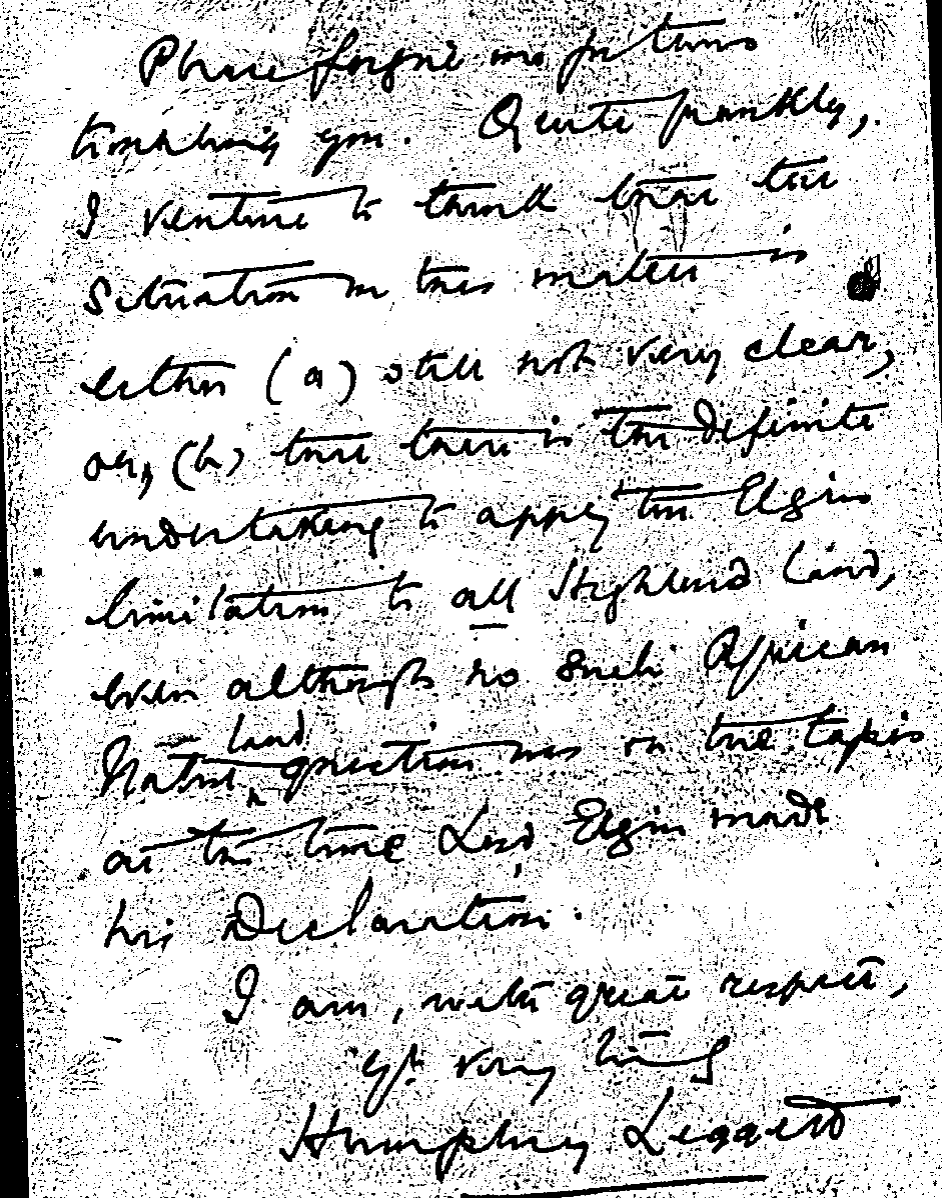 Please forgive me for thus
troubling you. Quite frankly,
I venture to think that the
situation in this matter is
either (a) still not very clear,
or, (b) that there is the definite
undertaking to apply the Elgin
limitation to all Highland Land,
even although no such African
Native land question was on the tapis
at the time Lord Elgin made
his Declaration.
I am, with great respect,
Yrs. very truly
Humphrey Leggett